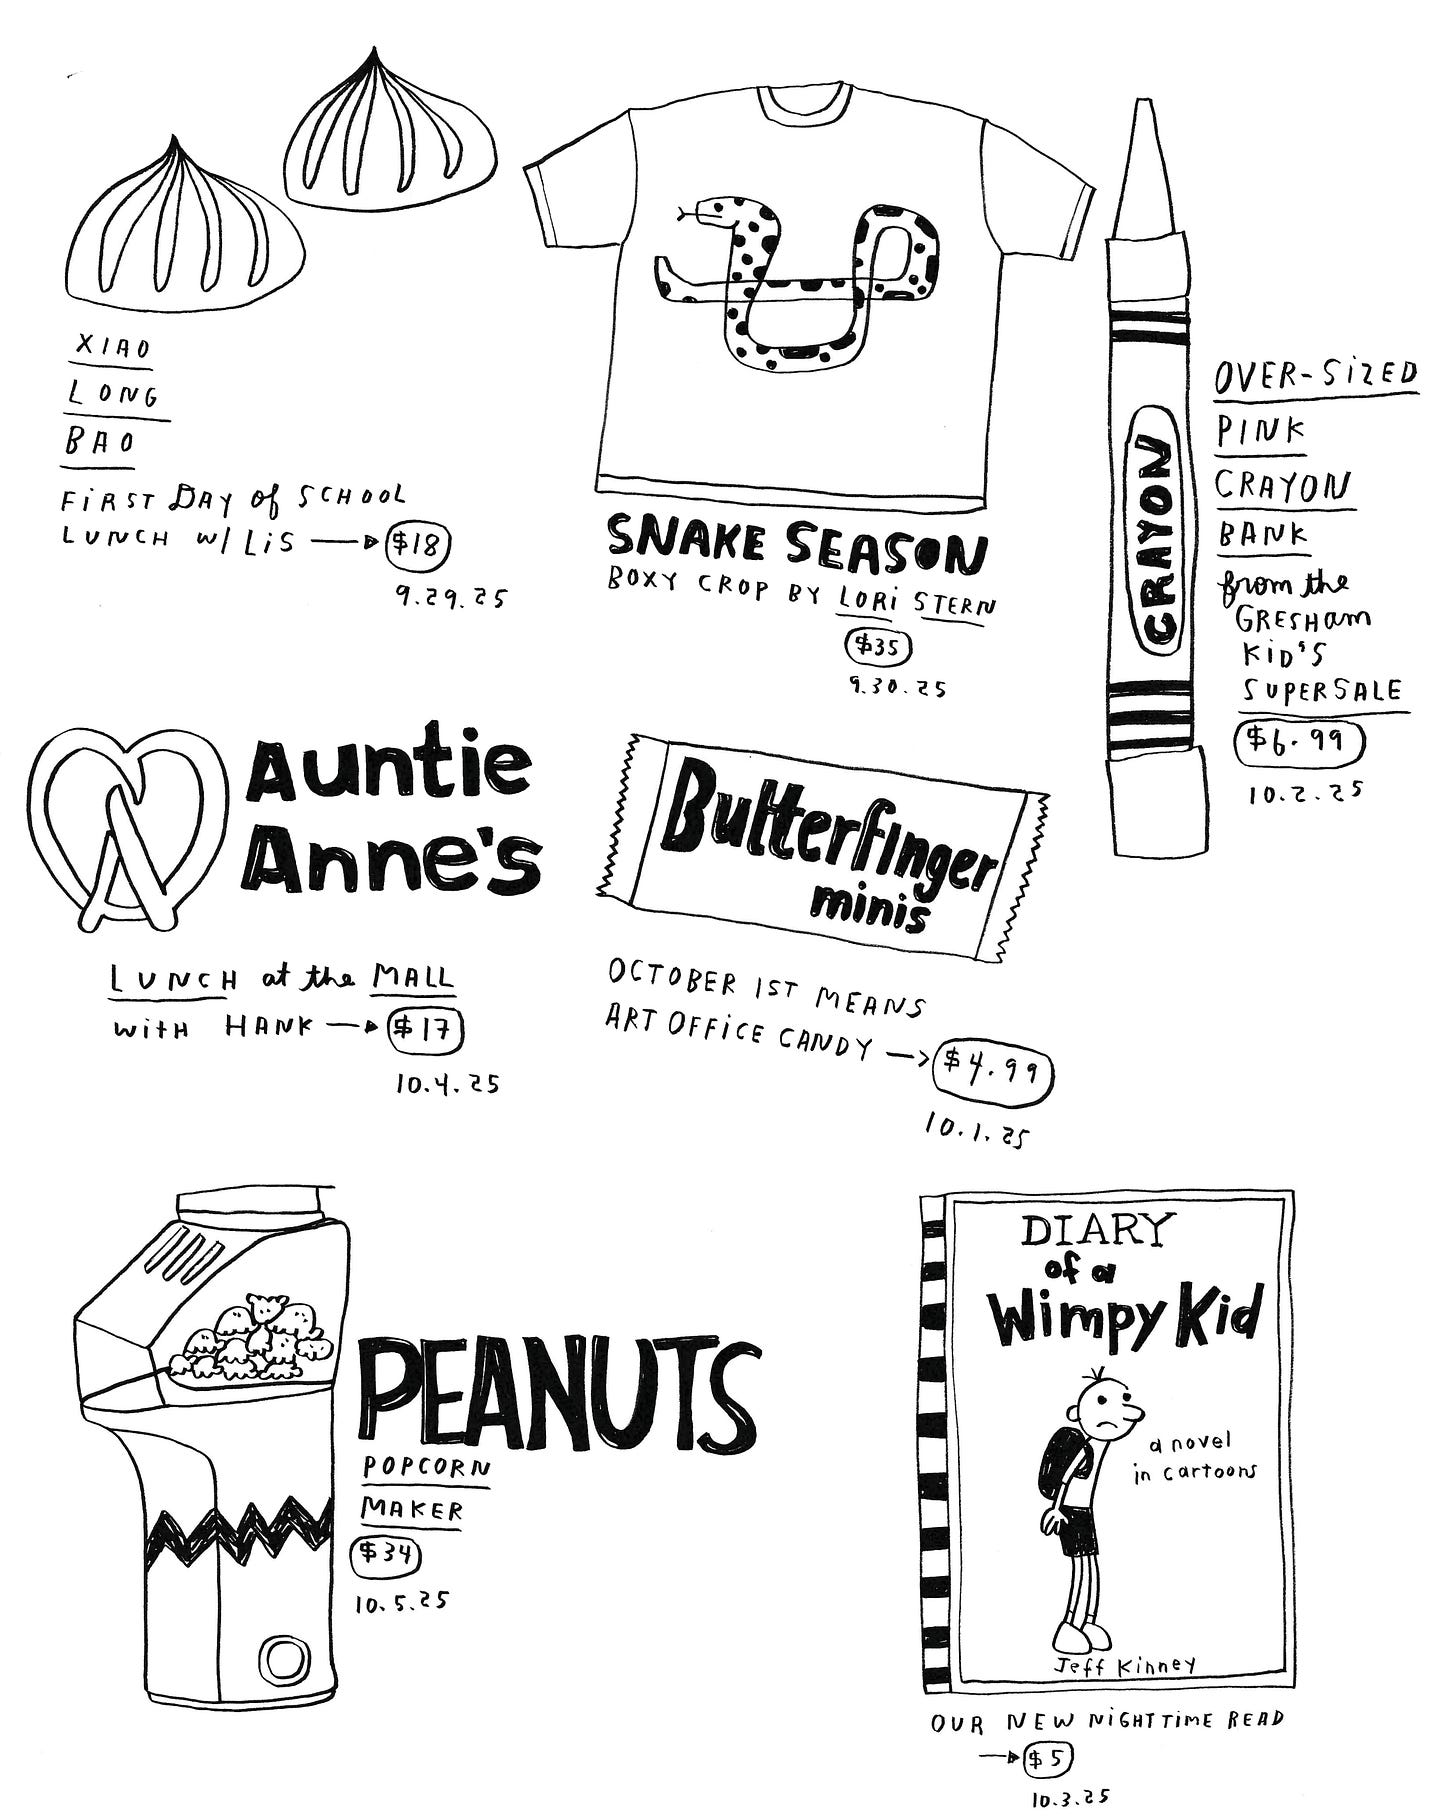 XIAO
LONG
BAO
FIRST DAY of SCHOOL
LUNCH w/ LiS
$18
9.29.25
SNAKE SEASON
BOXY CROP BY LORi STERN
$35
9.30.25
CRAYON
OVER-SiZED
PINK
CRAYON
BANK
from the
GRESHam
KiD'S
SUPERSALE
$6.99
10.2.25
Auntie
Anne's
LUNCH at the MALL
WiTH HANK
$17
10.4.25
Butterfinger
minis
OCTOBER 1ST MEANS
ART OFFiCE CANDY
$4.99
10.1.25
PEANUTS
POPCORN
MAKER
$34
10.5.25
DIARY
of a
Wimpy Kid
a novel
in cartoons
Jeff Kinney
OUR NEW NiGHTTiME READ
$5
10.3.25